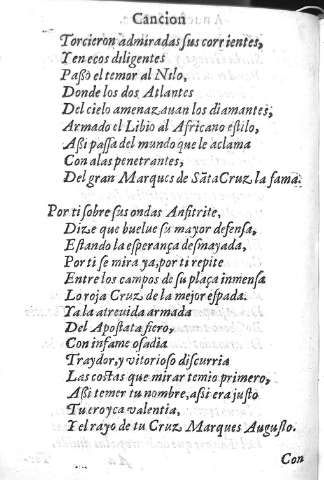 Cancion
Torcieron admiradas sus corrientes,
Y en ecos diligentes
Passò el temor al Nilo,
Donde los dos Atlantes
Del cielo amenazauan los diamantes,
Armado el Libio al Africano estilo,
Assi passa del mundo que le aclama
Con alas penetrantes,
Del gran Marques de Sãta Cruz la fama.
Por ti sobre sus ondas Anfitrite,
Dize que buelue su mayor defensa,
Estando la esperança desmayada,
Por ti se mira ya, por ti repite
Entre los campos de su plaça inmensa
Lo roja Cruz de la mejor espada.
Ya la atreuida armada
Del Apostata fiero,
Con infame osadia
Traydor, y vitorioso discurria
Las costas que mirar temio primero,
Assi temer tu nombre, assi era justo
Tu eroyca valentia,
Y el rayo de tu Cruz Marques Augusto.
Con